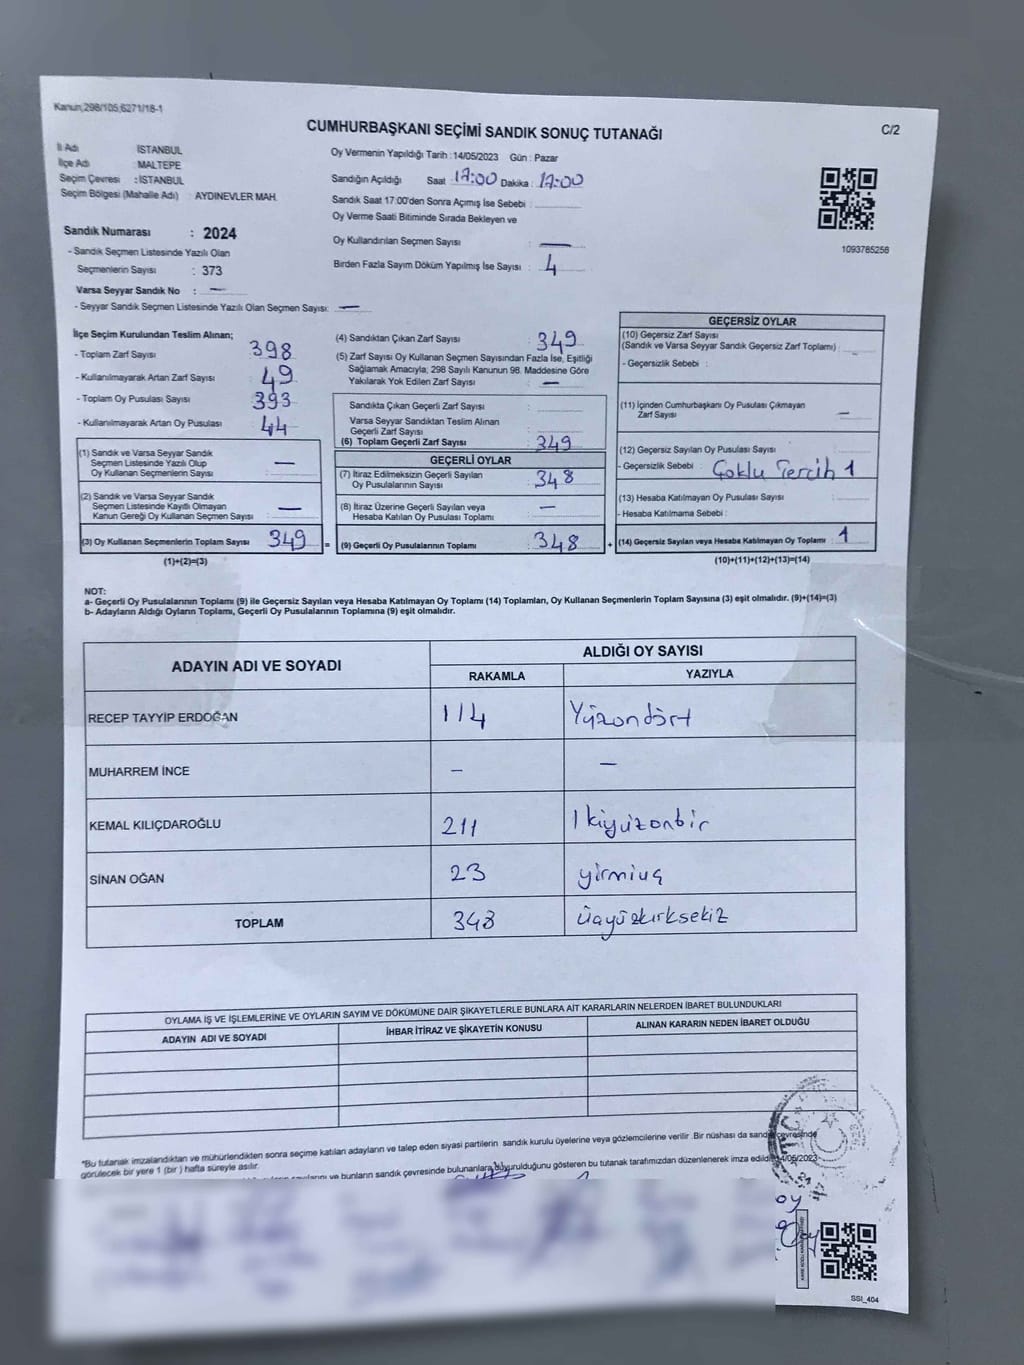 Kanun;298/105;6271/18-1
CUMHURBAŞKANI SEÇİMİ SANDIK SONUÇ TUTANAĞI
C/2
İl Adı İSTANBUL
İlçe Adı : MALTEPE
Seçim Çevresi : İSTANBUL
Seçim Bölgesi (Mahalle Adı) : AYDINEVLER MAH.
Sandık Numarası : 2024
- Sandık Seçmen Listesinde Yazılı Olan
Seçmenlerin Sayısı : 373
Varsa Seyyar Sandık No : —
- Seyyar Sandık Seçmen Listesinde Yazılı Olan Seçmen Sayısı: —
Oy Vermenin Yapıldığı Tarih : 14/05/2023 Gün : Pazar
Sandığın Açıldığı Saat : 17:00 Dakika : 17:00
Sandık Saat 17.00'den Sonra Açımış İse Sebebi :
Oy Verme Saati Bitiminde Sırada Bekleyen ve
Oy Kullandırılan Seçmen Sayısı : —
Birden Fazla Sayım Döküm Yapılmış İse Sayısı : 4
1093785256
İlçe Seçim Kurulundan Teslim Alınan;
- Toplam Zarf Sayısı 398
- Kullanılmayarak Artan Zarf Sayısı : 49
- Toplam Oy Pusulası Sayısı : 393
- Kullanılmayarak Artan Oy Pusulası : 44
(1) Sandık ve Varsa Seyyar Sandık
Seçmen Listesinde Yazılı Olup
Oy Kullanan Seçmenlerin Sayısı : —
(2) Sandık ve Varsa Seyyar Sandık
Seçmen Listesinde Kayıtlı Olmayan
Kanun Gereği Oy Kullanan Seçmen Sayısı : —
(3) Oy Kullanan Seçmenlerin Toplam Sayısı 349 =
(1)+(2)=(3)
(4) Sandıktan Çıkan Zarf Sayısı : 349
(5) Zarf Sayısı Oy Kullanan Seçmen Sayısından Fazla İse, Eşitliği
Sağlamak Amacıyla, 298 Sayılı Kanunun 98. Maddesine Göre
Yakılarak Yok Edilen Zarf Sayısı : —
Sandıkta Çıkan Geçerli Zarf Sayısı :
Varsa Seyyar Sandıktan Teslim Alınan
Geçerli Zarf Sayısı :
(6) Toplam Geçerli Zarf Sayısı : 349
GEÇERLİ OYLAR
(7) İtiraz Edilmeksizin Geçerli Sayılan
Oy Pusulalarının Sayısı : 348
(8) İtiraz Üzerine Geçerli Sayılan veya
Hesaba Katılan Oy Pusulası Toplamı : —
(9) Geçerli Oy Pusulalarının Toplamı : 348 +
GEÇERSİZ OYLAR
(10) Geçersiz Zarf Sayısı
(Sandık ve Varsa Seyyar Sandık Geçersiz Zarf Toplamı) :
- Geçersizlik Sebebi :
(11) İçinden Cumhurbaşkanı Oy Pusulası Çıkmayan
Zarf Sayısı : —
(12) Geçersiz Sayılan Oy Pusulası Sayısı :
- Geçersizlik Sebebi : Çoklu Tercih 1
(13) Hesaba Katılmayan Oy Pusulası Sayısı :
- Hesaba Katılmama Sebebi :
(14) Geçersiz Sayılan veya Hesaba Katılmayan Oy Toplamı : 1
(10)+(11)+(12)+(13)=(14)
NOT:
a- Geçerli Oy Pusulalarının Toplamı (9) ile Geçersiz Sayılan veya Hesaba Katılmayan Oy Toplamı (14) Toplamları, Oy Kullanan Seçmenlerin Toplam Sayısına (3) eşit olmalıdır. (9)+(14)=(3)
b- Adayların Aldığı Oyların Toplamı, Geçerli Oy Pusulalarının Toplamına (9) eşit olmalıdır.
ADAYIN ADI VE SOYADI ALDIĞI OY SAYISI
RAKAMLA YAZIYLA
RECEP TAYYİP ERDOĞAN 114 Yüzondört
MUHARREM İNCE – —
KEMAL KILIÇDAROĞLU 211 İkiyüzonbir
SİNAN OĞAN 23 yirmiüç
TOPLAM 348 üçyüzkırksekiz
OYLAMA İŞ VE İŞLEMLERİNE VE OYLARIN SAYIM VE DÖKÜMÜNE DAİR ŞİKAYETLERLE BUNLARA AİT KARARLARIN NELERDEN İBARET BULUNDUKLARI
ADAYIN ADI VE SOYADI İHBAR İTİRAZ VE ŞİKAYETİN KONUSU ALINAN KARARIN NEDEN İBARET OLDUĞU
*Bu tutanak imzalandıktan ve mühürlendikten sonra seçime katılan adayların ve talep eden siyasi partilerin sandık kurulu üyelerine veya gözlemcilerine verilir .Bir nüshası da sandık çevresinde
görülecek bir yere 1 (bir ) hafta süreyle asılır.
ve bunların sandık çevresinde bulunanlara duyurulduğunu gösteren bu tutanak tarafımızdan düzenlenerek imza edildi. 14/05/2023
SSI_404